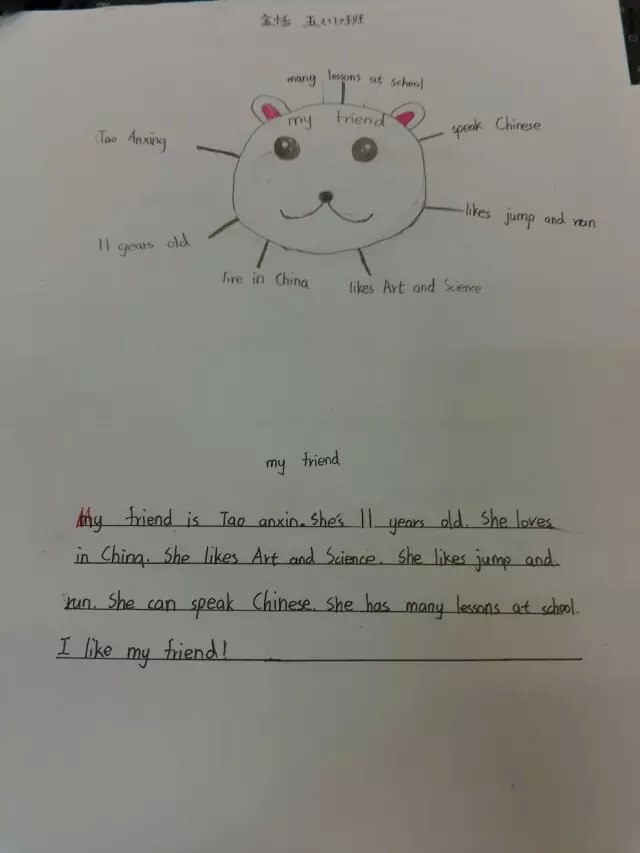 五(1)班
many lessons at school
my friend
speak Chinese
Tao Anxing
likes jump and run
11 years old
live in China
likes Art and Science
my friend
My friend is Tao anxin. She's 11 years old. She loves
in China. She likes Art and Science. She likes jump and
run. She can speak Chinese. She has many lessons at school.
I like my friend!